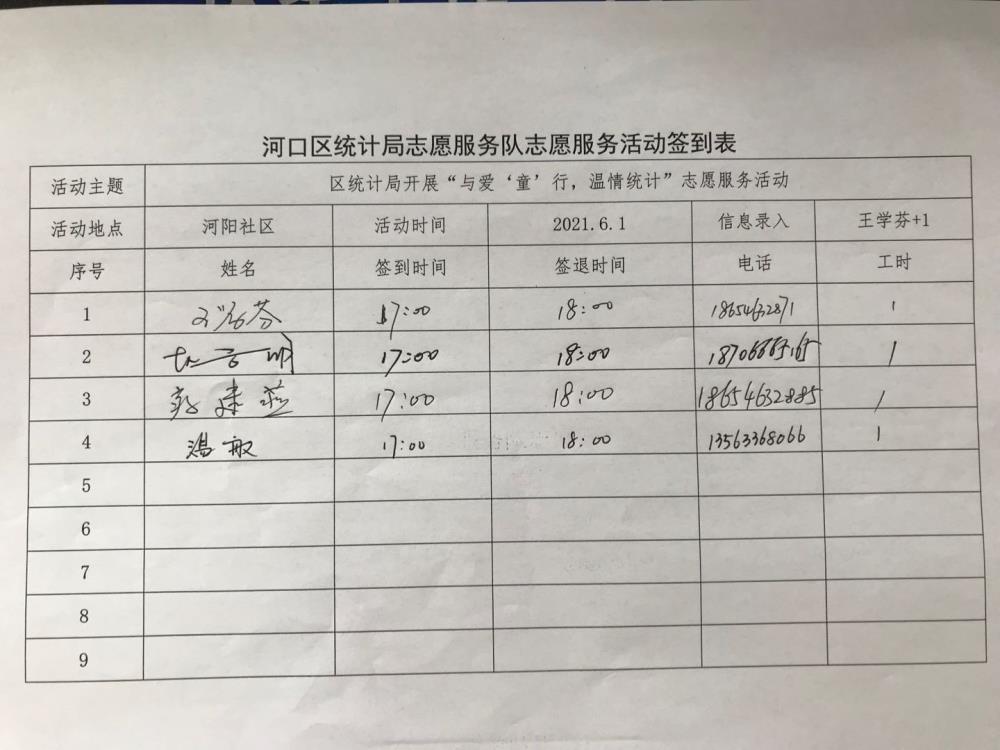 河口区统计局志愿服务队志愿服务活动签到表
活动主题 区统计局开展“与爱‘童’行，温情统计”志愿服务活动
活动地点 河阳社区 活动时间 2021.6.1 信息录入 王学芬+1
序号 姓名 签到时间 签退时间 电话 工时
1 17:00 18:00 18654632871 1
2 17:00 18:00 1
3 17:00 18:00 18654632885 1
4 冯敏 17:00 18:00 13563368066 1
5
6
7
8
9